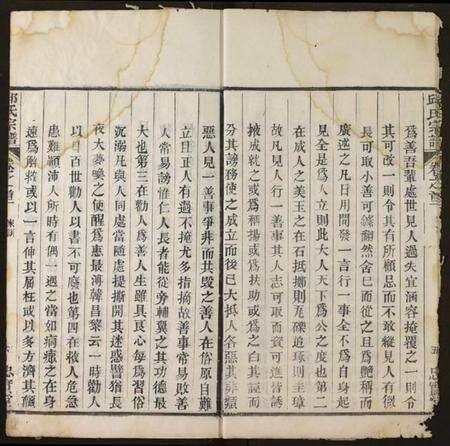 邱氏宗譜 卷之首
為善吾輩處世見人過失宜涵容掩覆之一則令
其可改一則令其有所顧忌而不敢縱見人有微
長可取小善可錄翻然舍已而從之且爲艷稱而
廣述之凡日用間發一言行一事全不爲自身起
見全是爲人立則此大人天下爲公之度也第二
在成人之美玉之在石抵擲則瓦礫追琢則圭璋
故凡見人行一善事其人志可取而資可進皆誘
掖成就之或爲稱揚或爲扶助或爲之白其誣而
分其謗務使之成立而後已大抵人各惡其非類
惡人見一善事爭非而共毀之善人在俗原自難
立且正人有過不掩尤多指摘故善事常易敗善
人常易謗惟仁人長者能從旁輔翼之其功德最
大也第三在勸人爲善人生雖具良心每爲習俗
沉溺凡與人同處當隨處提撕開其迷惑譬猶長
夜大夢喚之使醒爲惠最溥韓昌黎云一時勸人
以口百世勸人以書不可廢也第四在救人危急
患難顛沛人所時有偶一遇之當如痌瘝之在身
速爲解救或以一言伸其屈枉或以多方濟其顛
邱氏宗譜 卷之首